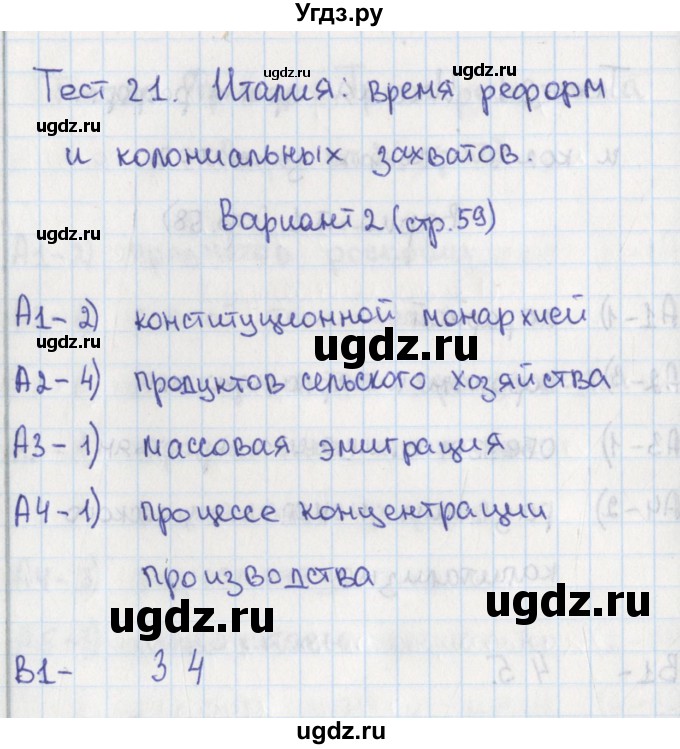 Угдз.ру
Тест 21. Италия: время реформ
и колониальных захватов.
Вариант 2 (стр. 59)
А1 - 2) конституционной монархией
А2 - 4) продуктов сельского хозяйства
А3 - 1) массовая эмиграция
А4 - 1) процессе концентрации
производства
В1 - 3 4
ugdz.ru
ugdz.ru
ugdz.ru
ugdz.ru
ugdz.ru
ugdz.ru
ugdz.ru
ugdz.ru
ugdz.ru
ugdz.ru
ugdz.ru
ugdz.ru
ugdz.ru